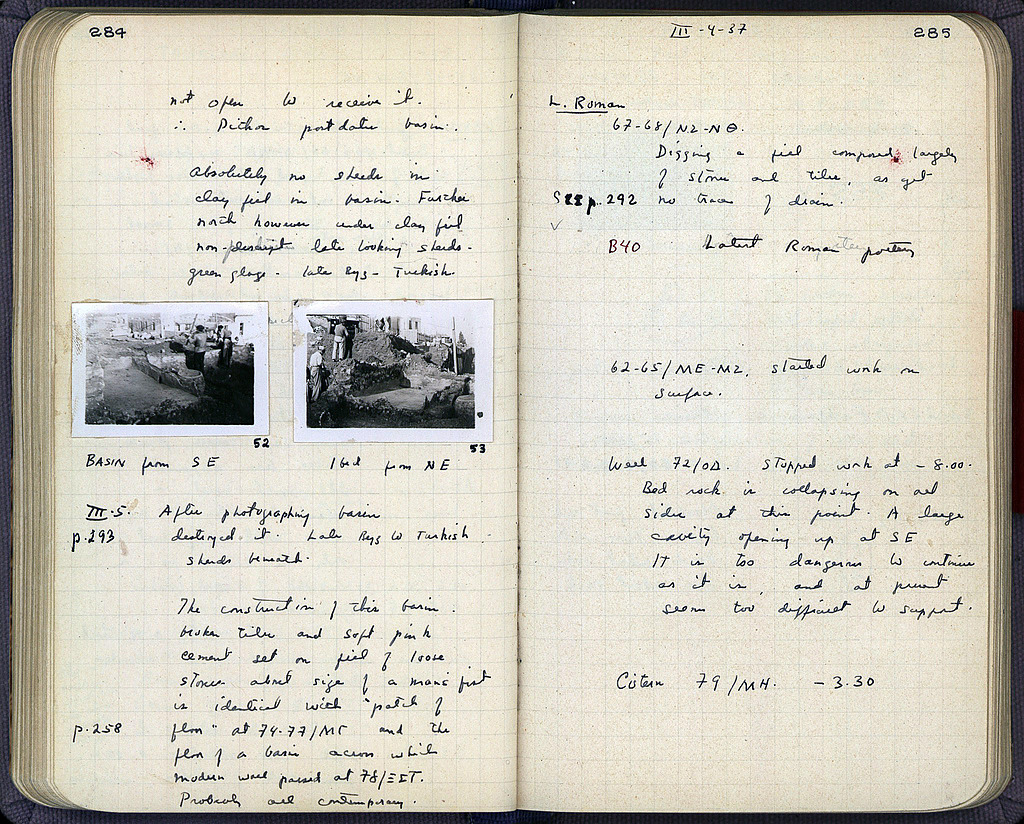 284
not open to receive it.
∴ Pithoi postdate basin.
Absolutely no sherds in
clay fill in basin. Further
north however under clay fill
non-descript late looking sherds -
green glaze - late Byz - Turkish.
52
53
BASIN from SE
Ibid from NE
III.5. After photographing basin
p.293 destroyed it. Late Byz to Turkish
sherds beneath.
The construction of this basin.
broken tiles and soft pink
cement set on fill of loose
stones about size of a man's fist
is identical with "patch of
p.258 floor" at 74-77/ΜΓ and the
floor of a basin across which
modern wall passed at 78/ΞΣΤ.
Probably all contemporary.
III-4-37
285
L. Roman
67-68/ΝΖ-ΝΘ.
Digging a fill composed largely
of stones and tiles, as yet
See p. 292 no trace of drain.
✓
B40 Latest Roman pottery
62-65/ΜΕ-ΜΖ, started work on
surface.
Well 72/ΟΔ. Stopped work at -8.00.
Bed rock is collapsing on all
sides at this point. A large
cavity opening up at SE
It is too dangerous to continue
as it is, and at present
seems too difficult to support.
Cistern 79/ΜΗ. -3.30